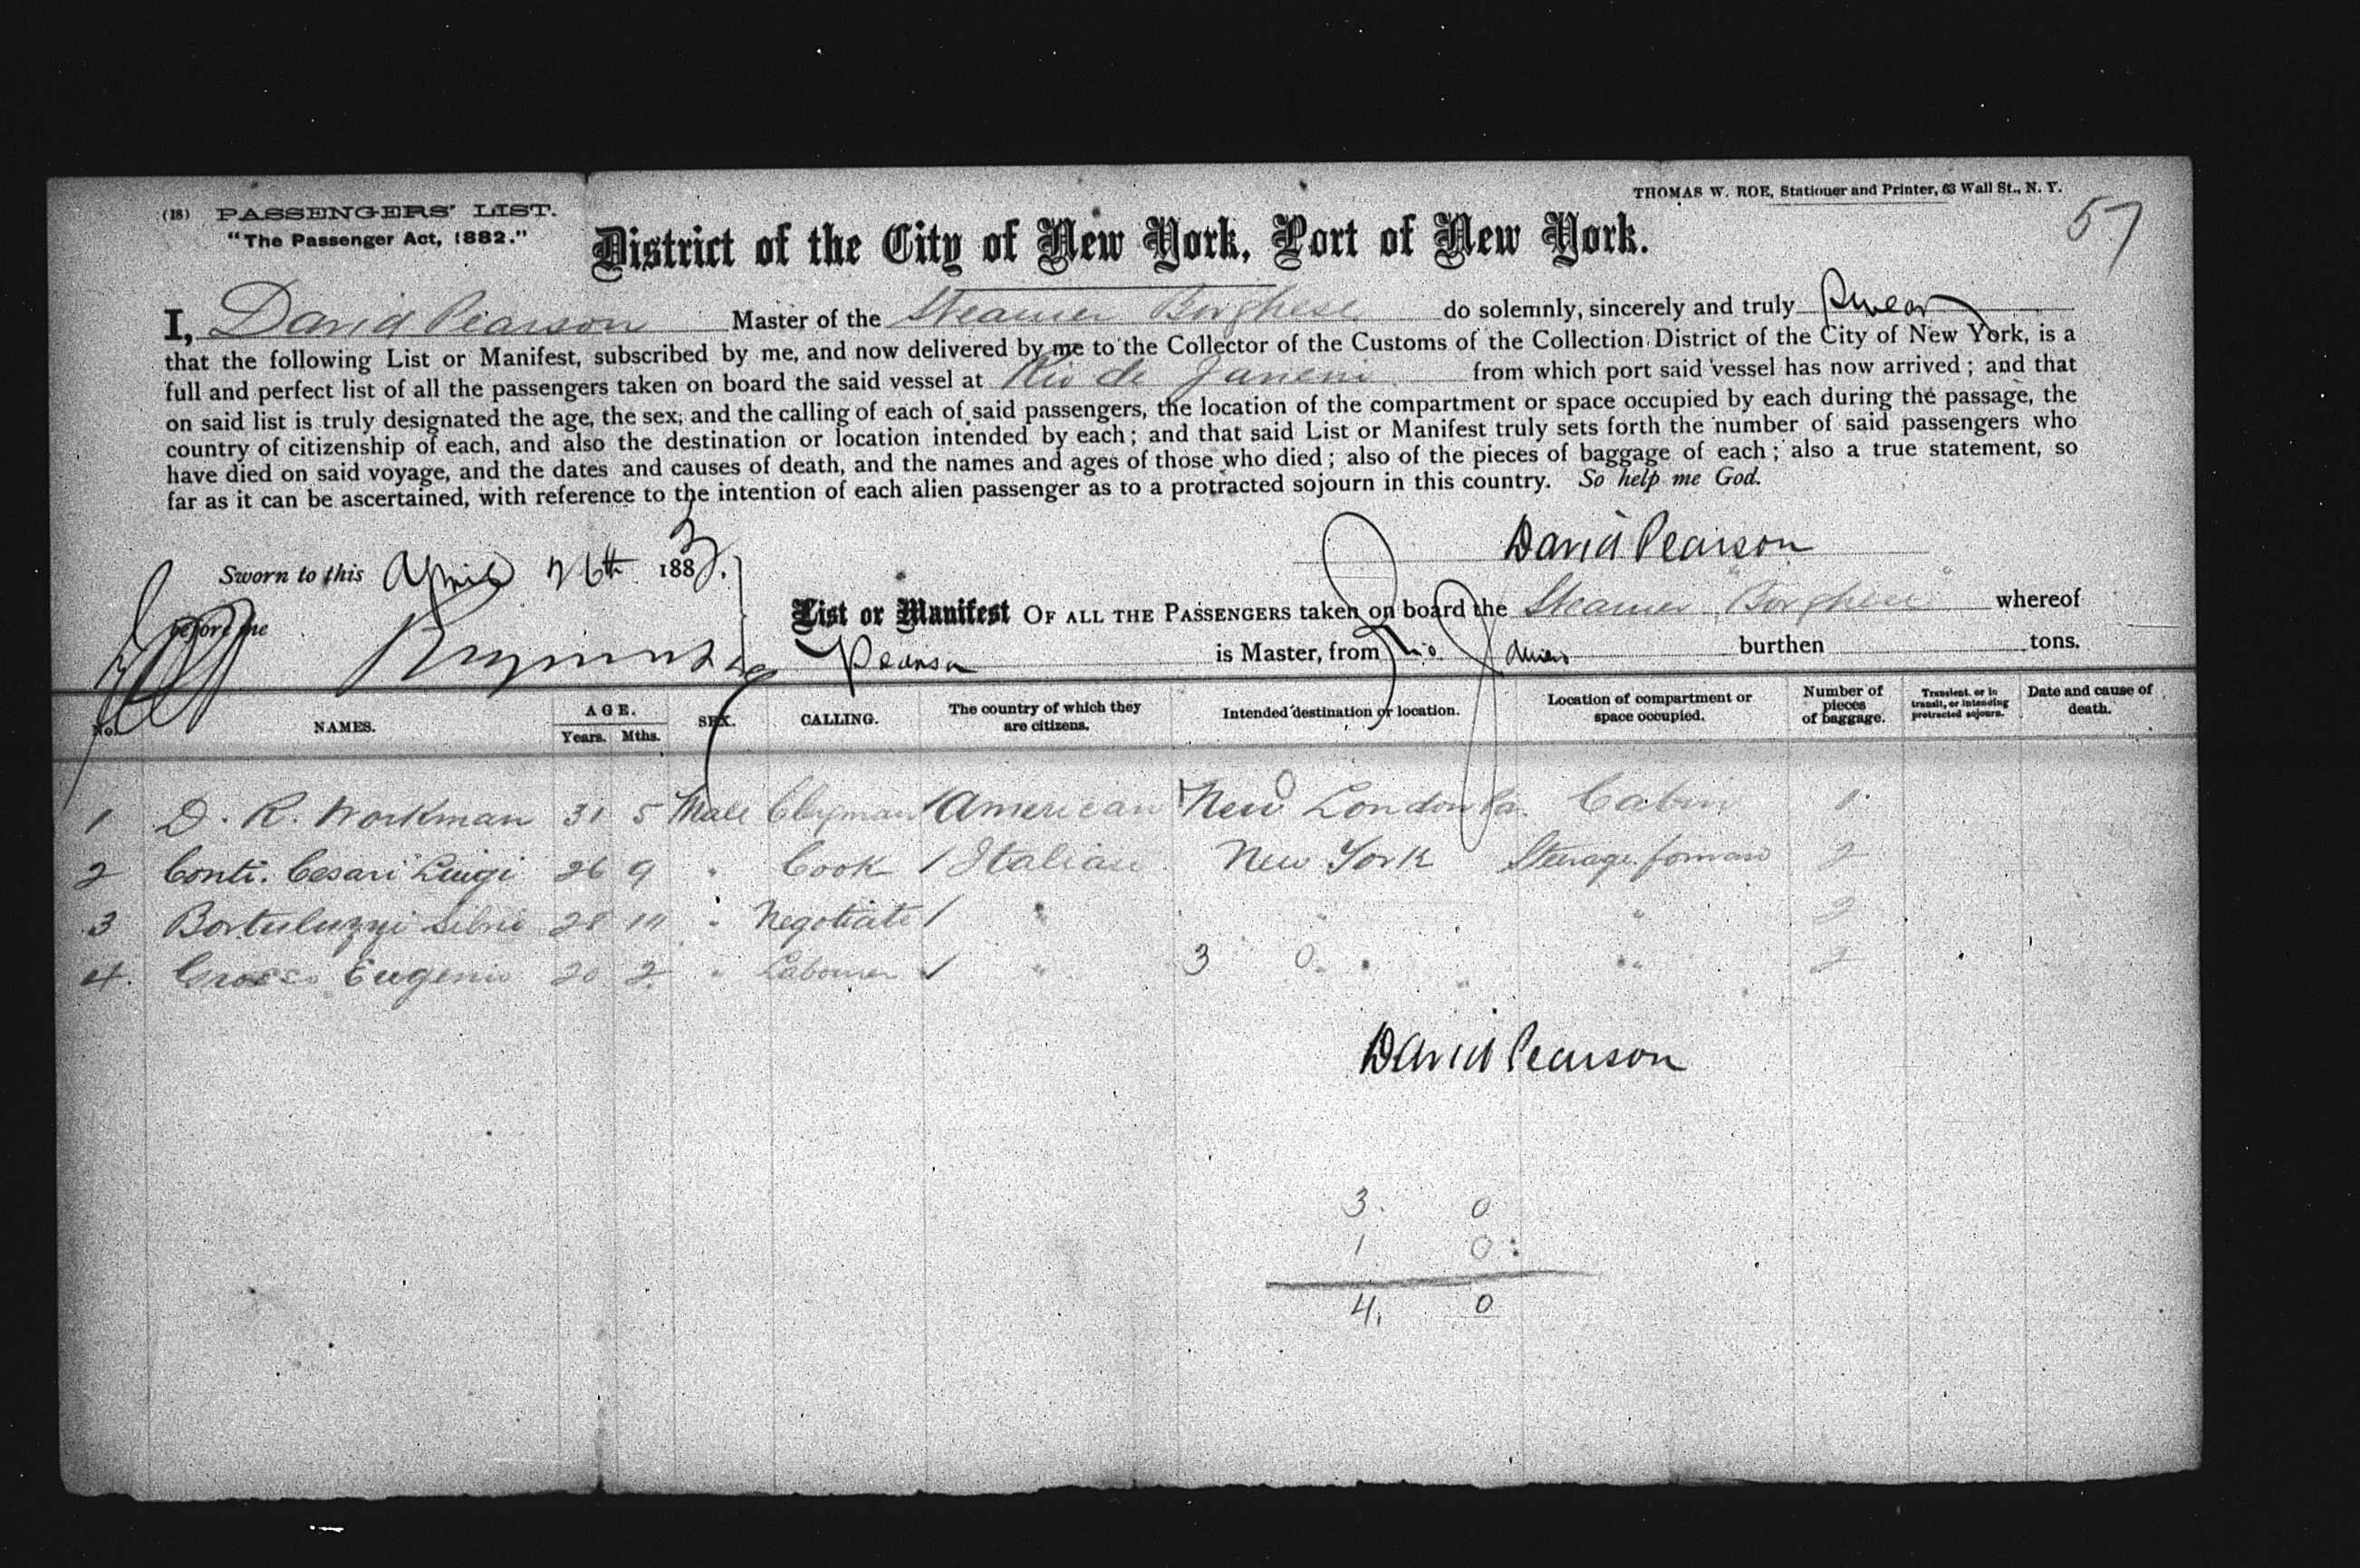 THOMAS W. ROE, Stationer and Printer, 63 Wall St., N. Y.
(18) PASSENGERS' LIST.
"The Passenger Act, 1882."
57
District of the City of New York, Port of New York.
I, David Pearson Master of the Steamer Borghese do solemnly, sincerely and truly swear
that the following List or Manifest, subscribed by me, and now delivered by me to the Collector of the Customs of the Collection District of the City of New York, is a
full and perfect list of all the passengers taken on board the said vessel at Rio de Janeiro from which port said vessel has now arrived; and that
on said list is truly designated the age, the sex, and the calling of each of said passengers, the location of the compartment or space occupied by each during the passage, the
country of citizenship of each, and also the destination or location intended by each; and that said List or Manifest truly sets forth the number of said passengers who
have died on said voyage, and the dates and causes of death, and the names and ages of those who died; also of the pieces of baggage of each; also a true statement, so
far as it can be ascertained, with reference to the intention of each alien passenger as to a protracted sojourn in this country. So help me God.
David Pearson
Sworn to this April 26th 188
before me
List or Manifest OF ALL THE PASSENGERS taken on board the Steamer "Borghese" whereof
Pearson is Master, from Rio Janeiro burthen tons.
No. NAMES. AGE. Years. Mths. SEX. CALLING. The country of which they are citizens. Intended destination or location. Location of compartment or space occupied. Number of pieces of baggage. Transient, or in transit, or intending protracted sojourn. Date and cause of death.
1 D. R. Workman 31 5 Male Clergyman American New London Pa. Cabin 1
2 Conti. Cesari Luigi 26 9 " Cook Italian New York Steerage forward 2
3 Bortuluzzi 28 " Negotiate " " " 2
4. Eugenio 20 2 " Labourer " 3 0 " " 2
David Pearson
3. 0
1 0
4. 0